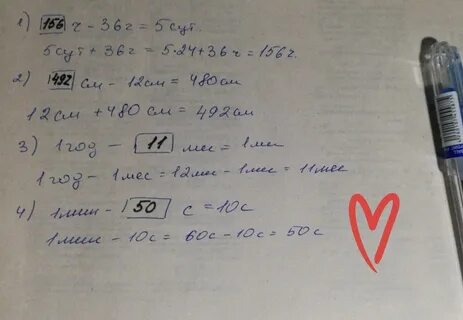 1) 156 ч - 36ч = 5 сут.
5 сут + 36ч = 5·24 + 36ч = 156ч.
2) 492 см - 12см = 480см
12см + 480см = 492см
3) 1 год - 11 мес = 1мес
1 год - 1мес = 12мес - 1мес = 11мес
4) 1мин - 50 с = 10с
1мин - 10с = 60с - 10с = 50с